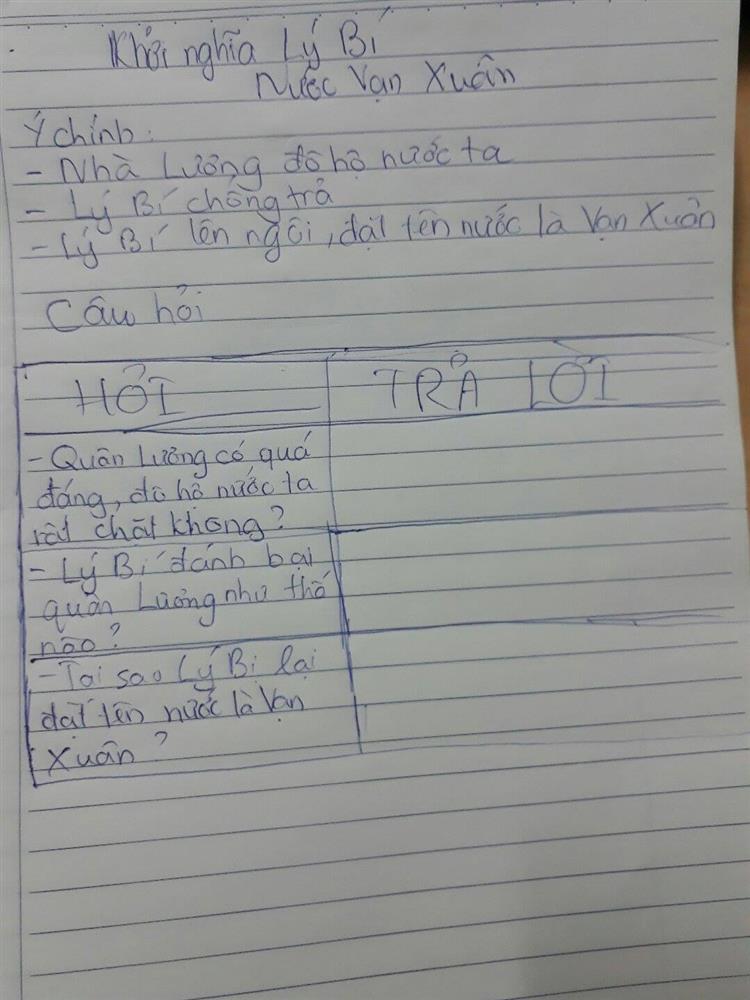 Khởi nghĩa Lý Bí
Nước Vạn Xuân
Ý chính:
- Nhà Lương đô hộ nước ta
- Lý Bí chống trả
- Lý Bí lên ngôi, đặt tên nước là Vạn Xuân
Câu hỏi
HỎI
TRẢ LỜI
- Quân Lương có quá
đáng, đô hộ nước ta
rất chặt không?
- Lý Bí đánh bại
quân Lương như thế
nào?
- Tại sao Lý Bí lại
đặt tên nước là Vạn
Xuân?